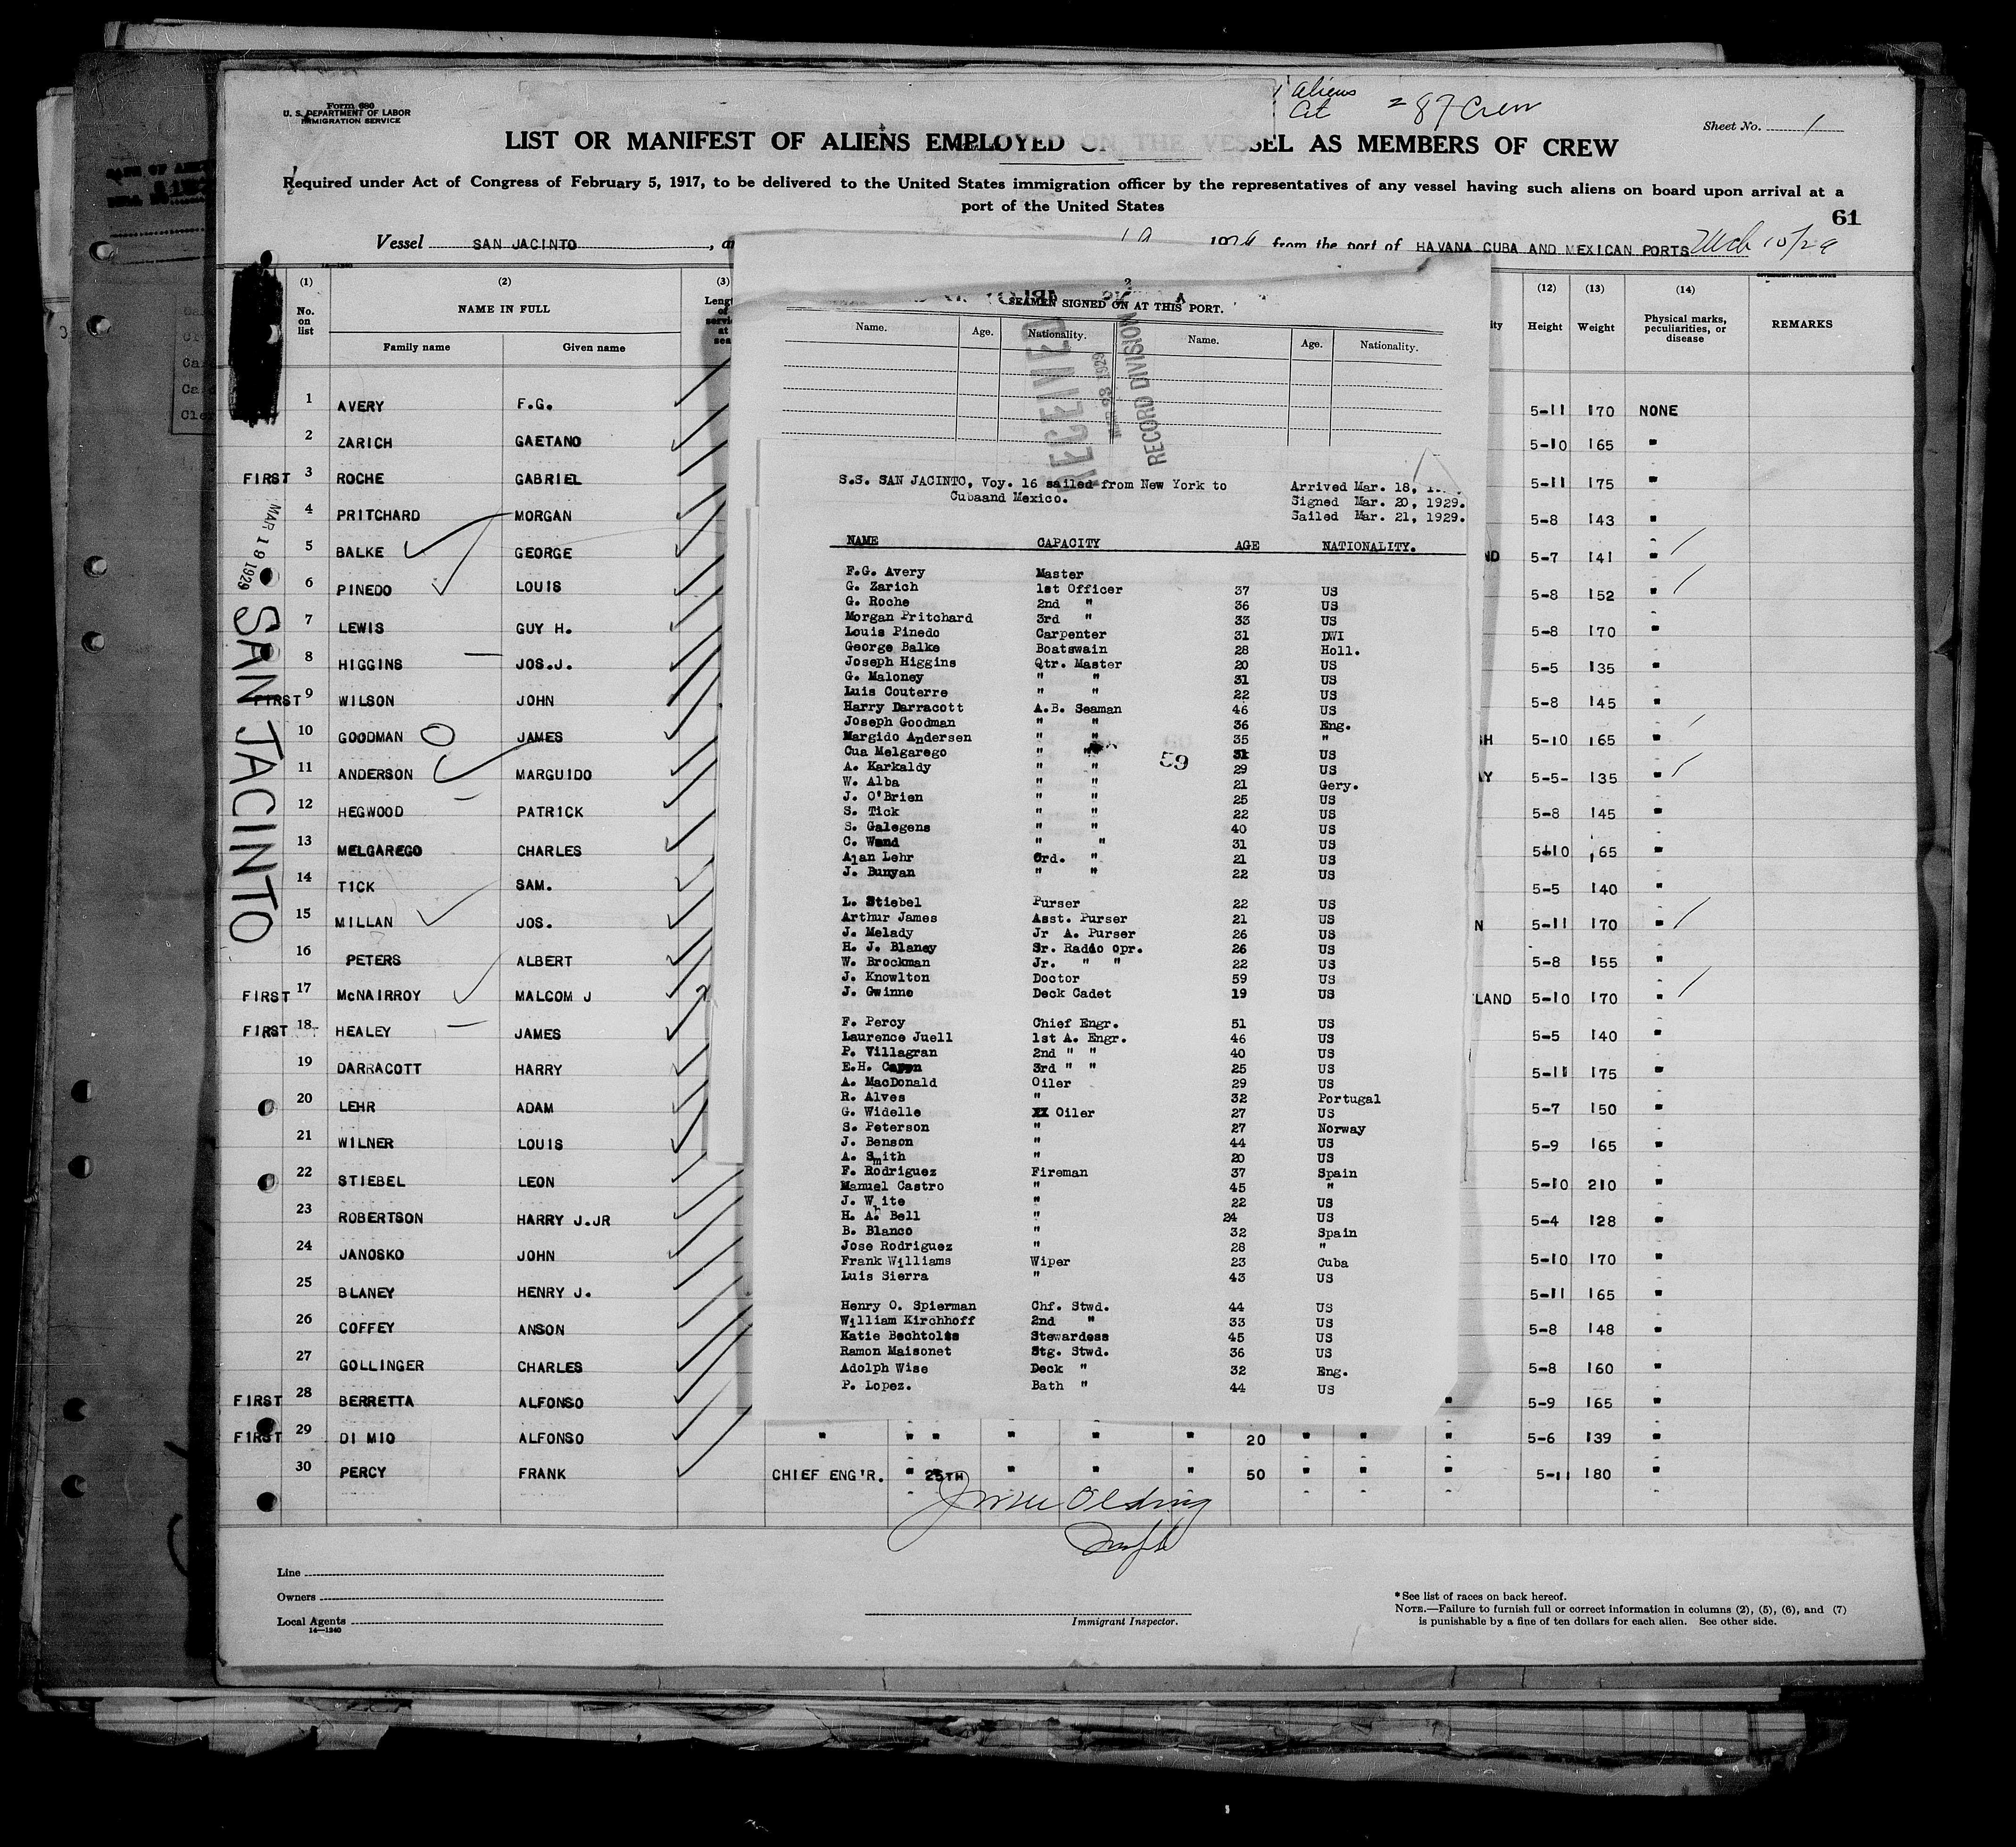 Form 680
U. S. DEPARTMENT OF LABOR
IMMIGRATION SERVICE
aliens
Cit = 87 Crew
Sheet No. 1
LIST OR MANIFEST OF ALIENS EMPLOYED ON THE VESSEL AS MEMBERS OF CREW
Required under Act of Congress of February 5, 1917, to be delivered to the United States immigration officer by the representatives of any vessel having such aliens on board upon arrival at a
port of the United States
61
Vessel SAN JACINTO, from the port of HAVANA CUBA AND MEXICAN PORTS Mch 15/29
(1) (2) (3) (12) (13) (14)
No. on list NAME IN FULL Height Weight Physical marks, peculiarities, or disease REMARKS
Family name Given name
1 AVERY F.G. 5-11 170 NONE
2 ZARICH GAETANO 5-10 165 "
FIRST 3 ROCHE GABRIEL 5-11 175 "
4 PRITCHARD MORGAN 5-8 143 "
5 BALKE GEORGE ND 5-7 141 "
6 PINEDO LOUIS 5-8 152 "
7 LEWIS GUY H. 5-8 170 "
8 HIGGINS JOS.J. 5-5 135 "
FIRST 9 WILSON JOHN 5-8 145 "
10 GOODMAN JAMES SH 5-10 165 "
11 ANDERSON MARGUIDO AY 5-5- 135 "
12 HEGWOOD PATRICK 5-8 145 "
13 MELGAREGO CHARLES 5-10 165 "
14 TICK SAM. 5-5 140 "
15 MILLAN JOS. N 5-11 170 "
16 PETERS ALBERT 5-8 155 "
FIRST 17 McNAIRROY MALCOM J TLAND 5-10 170 "
FIRST 18 HEALEY JAMES 5-5 140 "
19 DARRACOTT HARRY 5-11 175 "
20 LEHR ADAM 5-7 150 "
21 WILNER LOUIS 5-9 165 "
22 STIEBEL LEON 5-10 210 "
23 ROBERTSON HARRY J.JR 5-4 128 "
24 JANOSKO JOHN 5-10 170 "
25 BLANEY HENRY J. 5-11 165 "
26 COFFEY ANSON 5-8 148 "
27 GOLLINGER CHARLES 5-8 160 "
FIRST 28 BERRETTA ALFONSO " 5-9 165 "
FIRST 29 DI MIO ALFONSO " " " " " " 20 " " " 5-6 139 "
30 PERCY FRANK CHIEF ENG'R. " 25TH " " " 50 " " " 5-11 180 "
MAR 19 1929
SAN JACINTO
2
SEAMEN SIGNED ON AT THIS PORT.
Name. Age. Nationality. Name. Age. Nationality.
RECEIVED
MAR 23 1929
RECORD DIVISION
S.S. SAN JACINTO, Voy. 16 sailed from New York to Arrived Mar. 18,
Cubaand Mexico. Signed Mar. 20, 1929.
Sailed Mar. 21, 1929.
NAME CAPACITY AGE NATIONALITY.
F.G. Avery Master
G. Zarich 1st Officer 37 US
G. Roche 2nd " 36 US
Morgan Pritchard 3rd " 33 US
Louis Pinedo Carpenter 31 DWI
George Balke Boatswain 28 Holl.
Joseph Higgins Qtr. Master 20 US
G. Maloney " " 31 US
Luis Couterre " " 22 US
Harry Darracott A.B. Seaman 46 US
Joseph Goodman " " 36 Eng.
Margido Andersen " " 35 "
Cua Melgarego " " 31 US
59
A. Karkaldy " " 29 US
W. Alba " " 21 Gery.
J. O'Brien " " 25 US
S. Tick " " 22 US
S. Galegens " " 40 US
C. Wand " " 31 US
Ajan Lehr Ord. " 21 US
J. Bunyan " " 22 US
L. Stiebel Purser 22 US
Arthur James Asst. Purser 21 US
J. Melady Jr A. Purser 26 US
H. J. Blaney Sr. Radio opr. 26 US
W. Brockman Jr. " " 22 US
J. Knowlton Doctor 59 US
J. Gwinne Deck Cadet 19 US
F. Percy Chief Engr. 51 US
Laurence Juell 1st A. Engr. 46 US
P. Villagran 2nd " " 40 US
E.H. Capen 3rd " " 25 US
A. MacDonald Oiler 29 US
R. Alves " 32 Portugal
G. Widelle Oiler 27 US
S. Peterson " 27 Norway
J. Benson " 44 US
A. Smith " 20 US
F. Rodriguez Fireman 37 Spain
Manuel Castro " 45 "
J. White " 22 US
H. A. Bell " 24 US
B. Blanco " 32 Spain
Jose Rodriguez " 28 "
Frank Williams Wiper 23 Cuba
Luis Sierra " 43 US
Henry O. Spierman Chf. Stwd. 44 US
William Kirchhoff 2nd " 33 US
Katie Bechtolts Stewardess 45 US
Ramon Maisonet Stg. Stwd. 36 US
Adolph Wise Deck " 32 Eng.
P. Lopez. Bath " 44 US
Line
Owners
Local Agents
14—1240
Immigrant Inspector.
* See list of races on back hereof.
NOTE.—Failure to furnish full or correct information in columns (2), (5), (6), and (7)
is punishable by a fine of ten dollars for each alien. See other side.